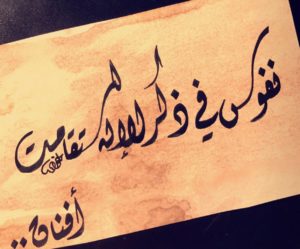 نفوس في ذكر الإله استقامت
أفنان ..